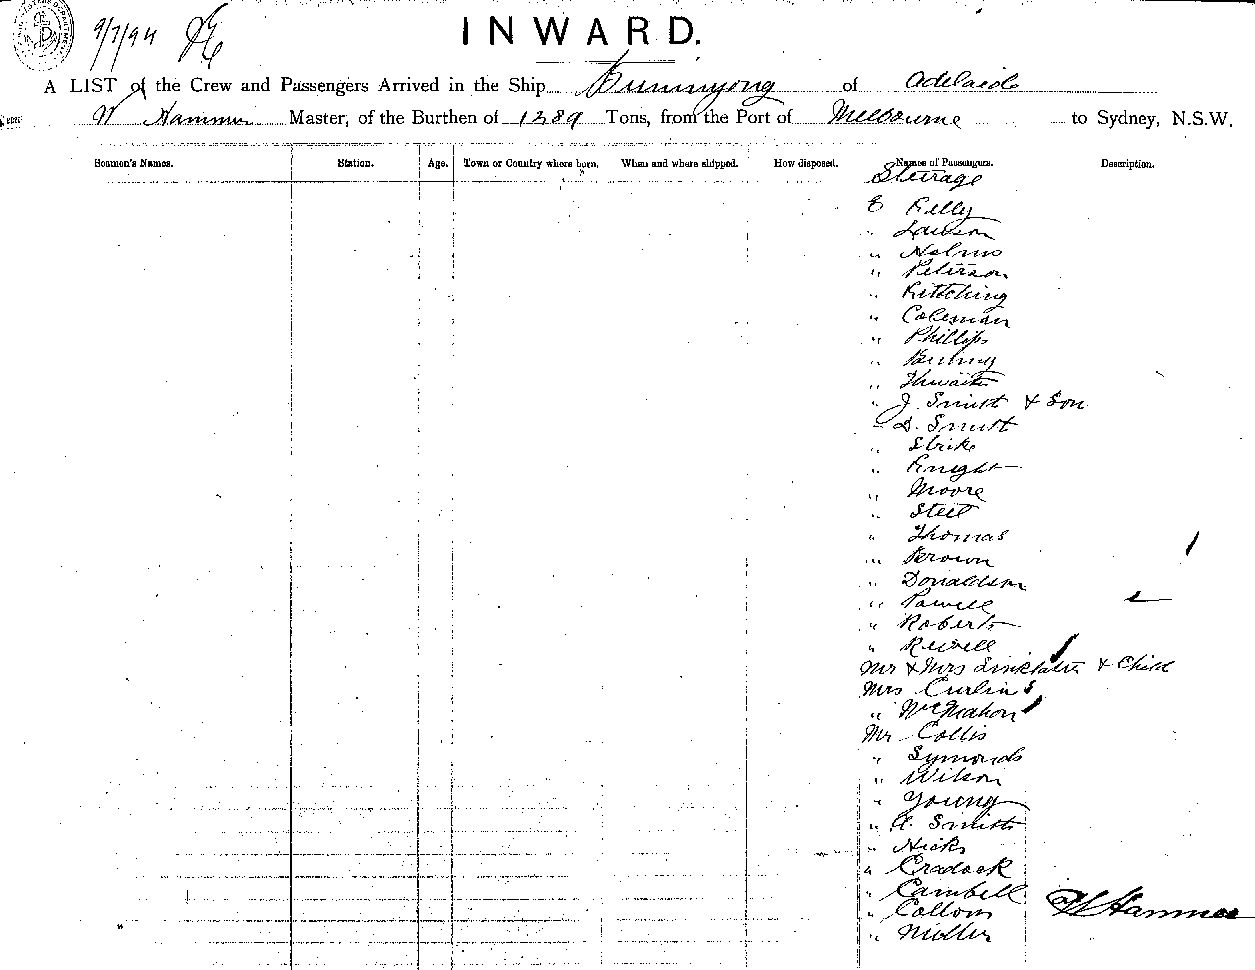 9/7/94
INWARD.
A LIST of the Crew and Passengers Arrived in the Ship Buninyong of Adelaide
W Hammer Master, of the Burthen of 1289 Tons, from the Port of Melbourne to Sydney, N.S.W.
Seamen's Names. Station. Age. Town or Country where born. When and where shipped. How disposed. Names of Passengers. Description.
Steerage
Kelly
" Lawson
" Holmes
" Peterson
" Kitching
" Coleman
" Phillips
"
" Thwaites
" J. Smith & Son
" D. Smith
" Strike
" Knight
" Moore
" Steel
" Thomas
" Brown
" Donaldson
" Powell
" Roberts
" Rewell
Mr & Mrs Linklater & Child
Mrs Curlin
" McMahon
Mr Collis
" Symonds
" Wilson
" Young
" A. Smith
" Hicks
" Cradock
" Cambell
" Collom
" Muller
W Hammer